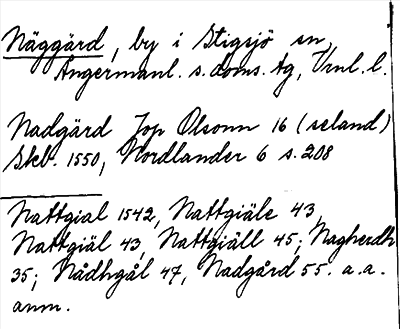 Näggärd, by i Stigsjö sn,
Ångermanl. s. doms. tg, Vrnl. l.
Nadgärd Jop Olsonn 16 (seland)
Skb. 1550, Nordlander 6 s. 208
Nattgial 1542, Nattgiäle 43,
Nattgiäl 43, Nattgiäll 45; Nagherdh
35; Nådhgål 47, Nadgård 55. a.a.
anm.